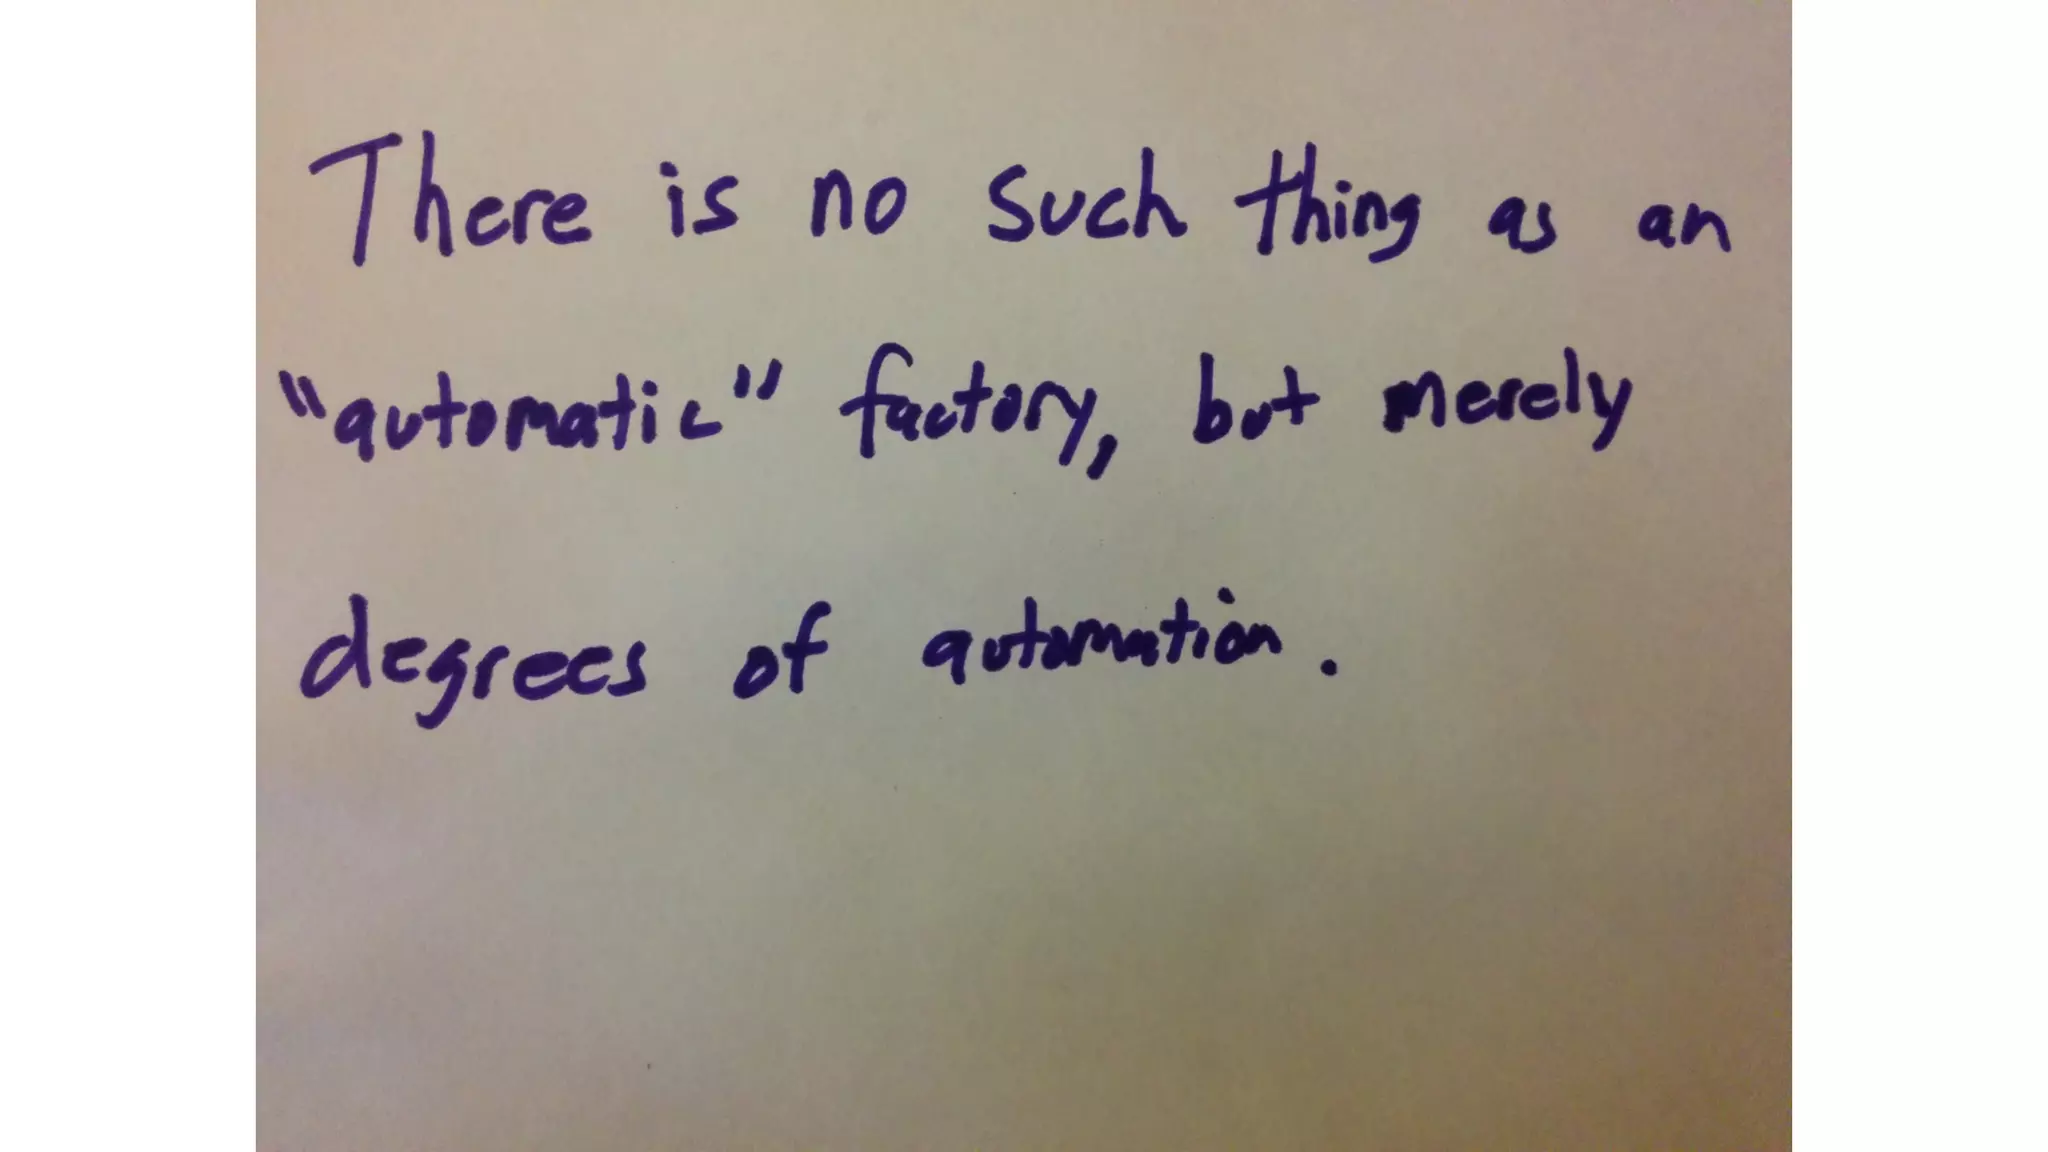 There is no such thing as an
"automatic" factory, but merely
degrees of automation.